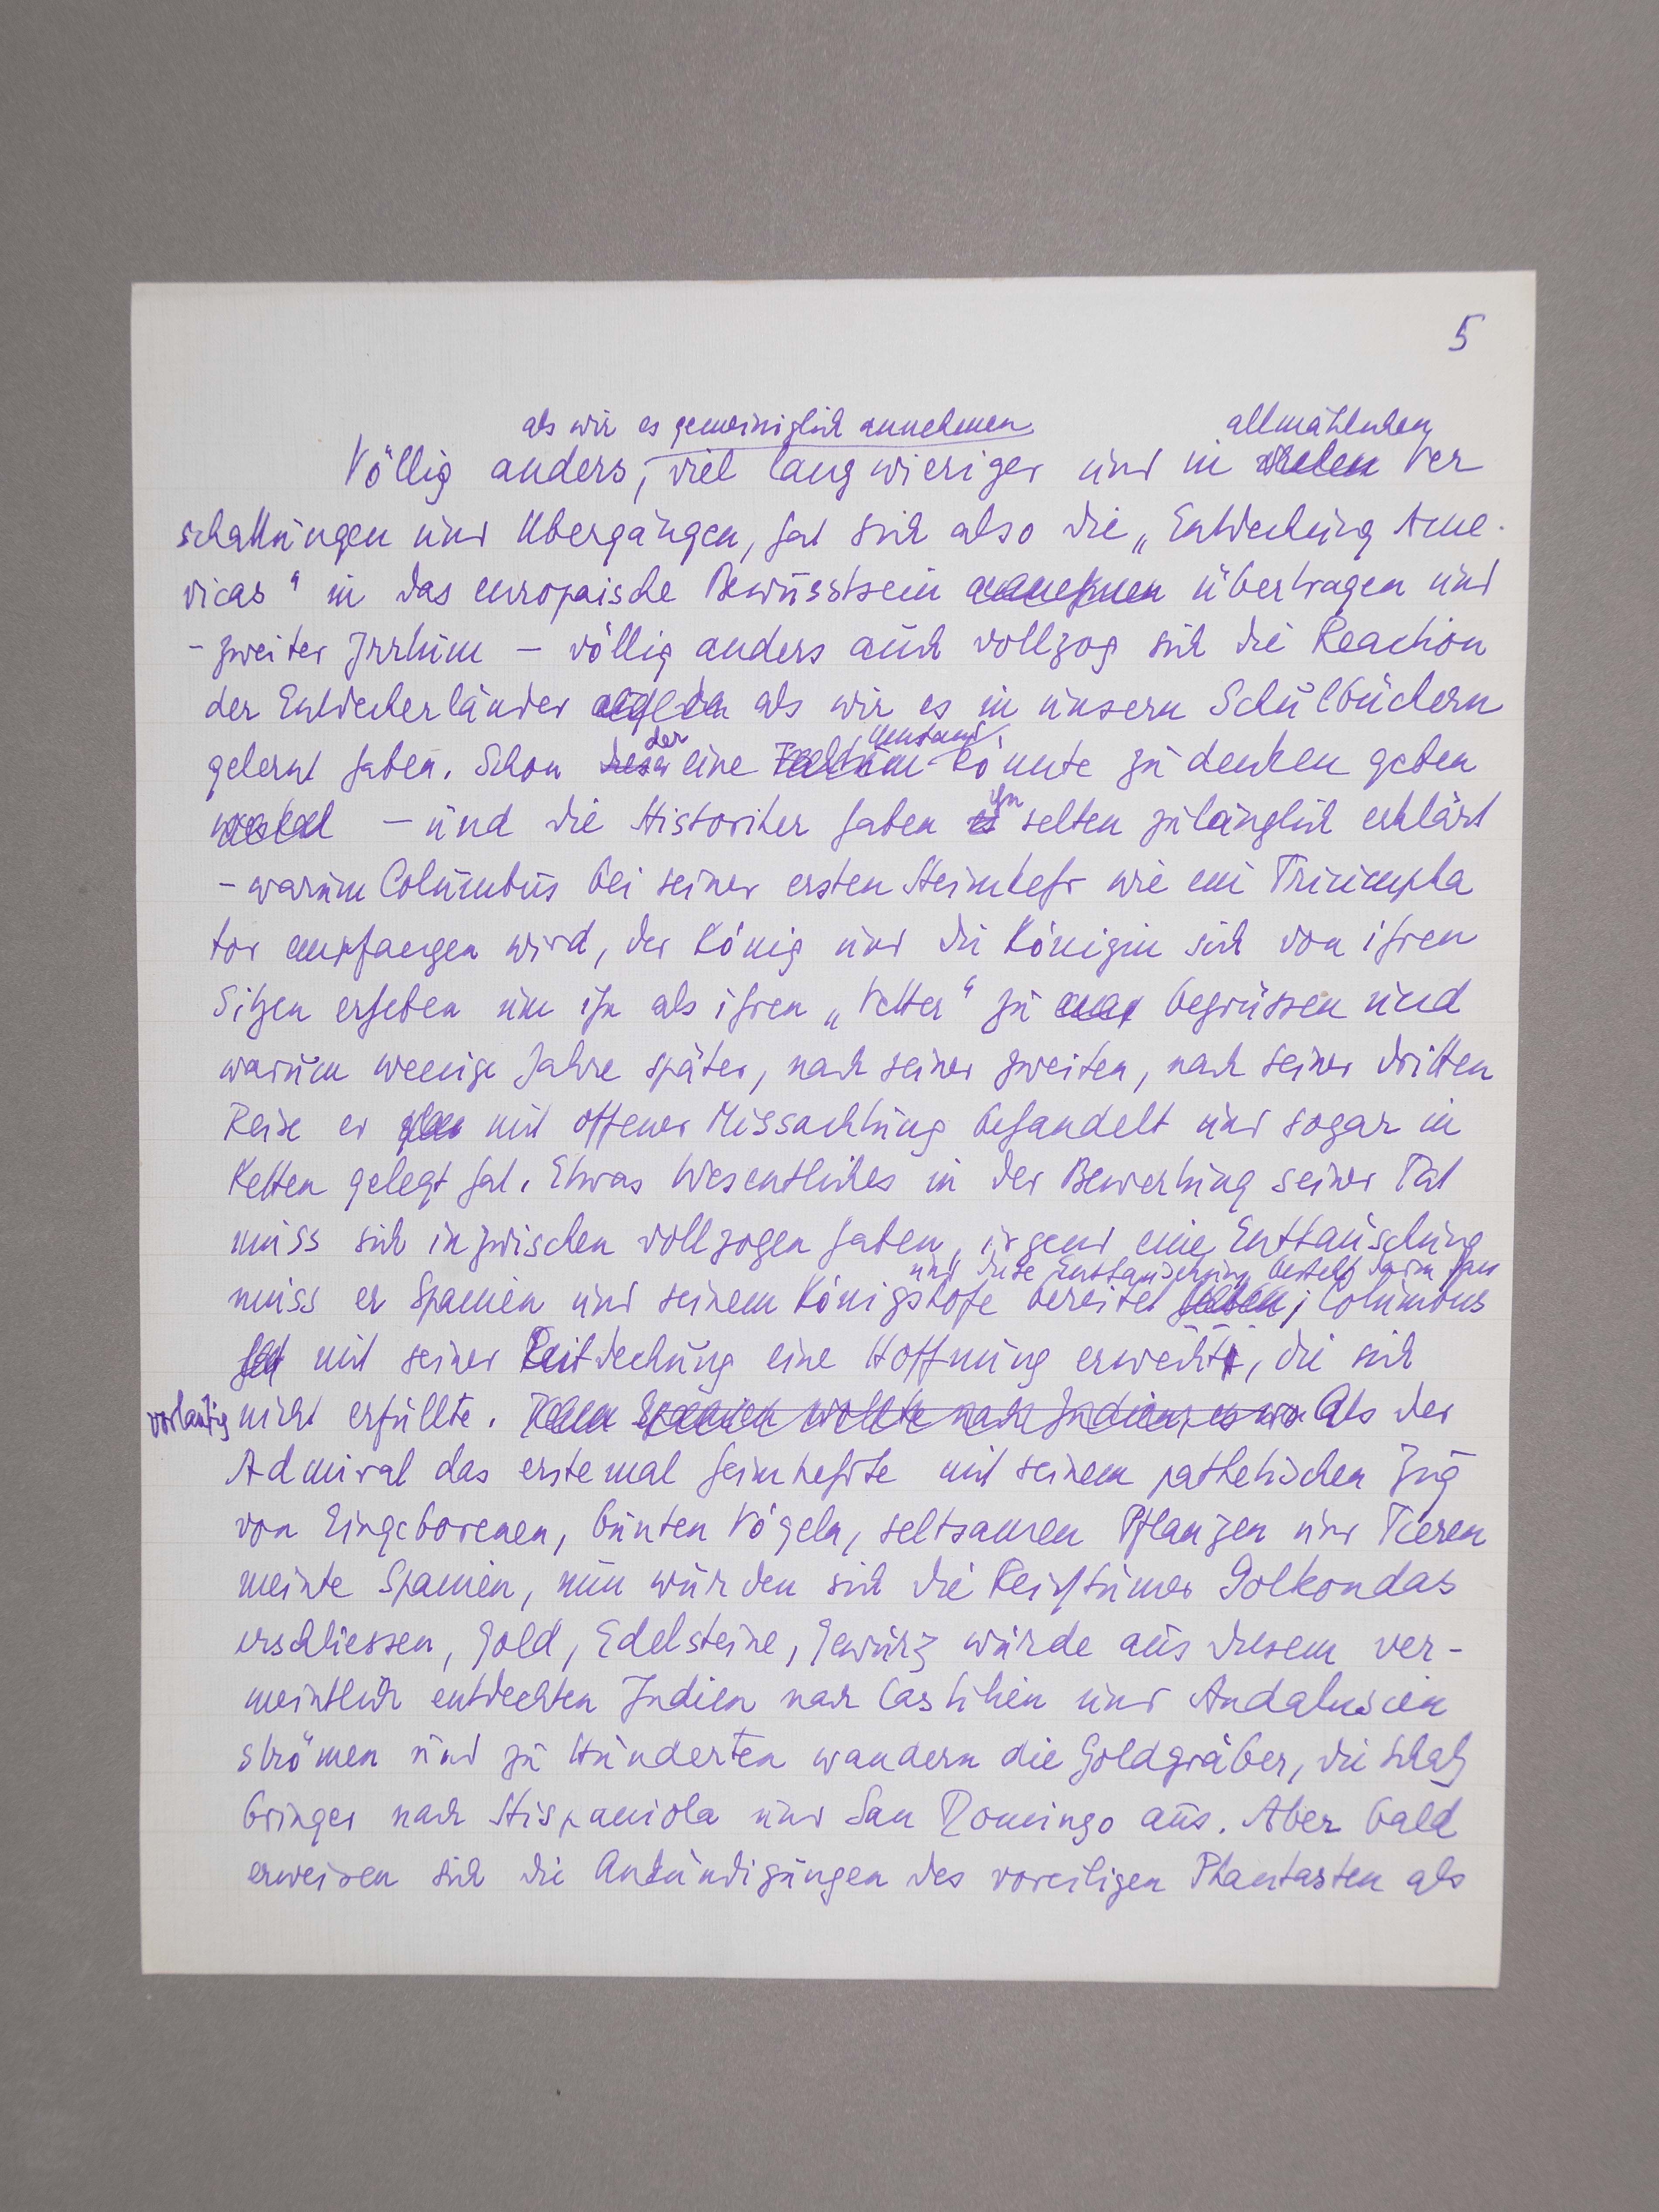 5
als wir es gemeiniglich annehmen
allmählichen
Völlig anders, viel langwieriger und in vielen Ver
schattungen und Übergängen, hat sich also die „Entdeckung Ame-
ricas“ in das europäische Bewusstsein übertragen und
- zweiter Irrtum – völlig anders auch vollzog sich die Reaction
der Entdeckerländer als wir es in unsern Schulbüchern
der Umstand
gelernt haben. Schon dieser eine könnte zu denken geben
ihn
– und die Historiker haben es selten zulänglich erklärt
– warum Columbus bei seiner ersten Heimkehr wie ein Triumpha
tor empfangen wird, der König und die Königin sich von ihren
Sitzen erheben um ihn als ihren „Vetter“ zu begrüssen und
warum wenige Jahre später, nach seiner zweiten, nach seiner dritten
Reise er mit offener Missachtung behandelt und sogar in
Ketten gelegt hat. Etwas Wesentliches in der Bewertung seiner Tat
muss sich inzwischen vollzogen haben, irgend eine Enttäuschung
und diese Enttäuschung besteht darin dass
muss er Spanien und seinem Königshofe bereitet haben; Columbus
hat mit seiner Entdeckung eine Hoffnung erweckt, die sich
vorläufig nicht erfüllte. Spanien wollte nach Indien, es war Als der
Admiral das erstemal heimkehrte mit seinem pathetischen Zug
von Eingeborenen, bunten Vögeln, seltsamen Pflanzen und Tieren
meinte Spanien, nun würden sich die Reichtümer Golkondas
erschliessen, Gold, Edelsteine, Gewürz würde aus diesem ver-
meintlich entdeckten Indien nach Castilien und Andalusien
strömen und zu Hunderten wandern die Goldgräber, die Schatz
bringer nach Hispaniola und San Domingo aus. Aber bald
erweisen sich die Ankündigungen des voreiligen Phantasten als